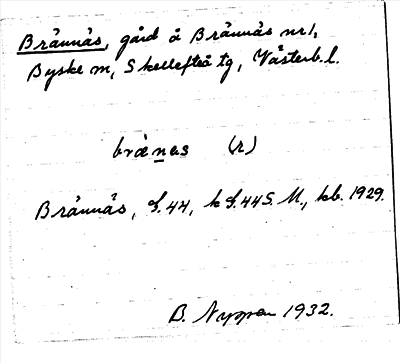 Brännäs, gård å Brännäs nr 1,
Byske m, Skellefteå tg, Västerb. l.
brænas (r)
Brännäs, L.44, k L.44 S. M., kb. 1929.
B. Nyman 1932.